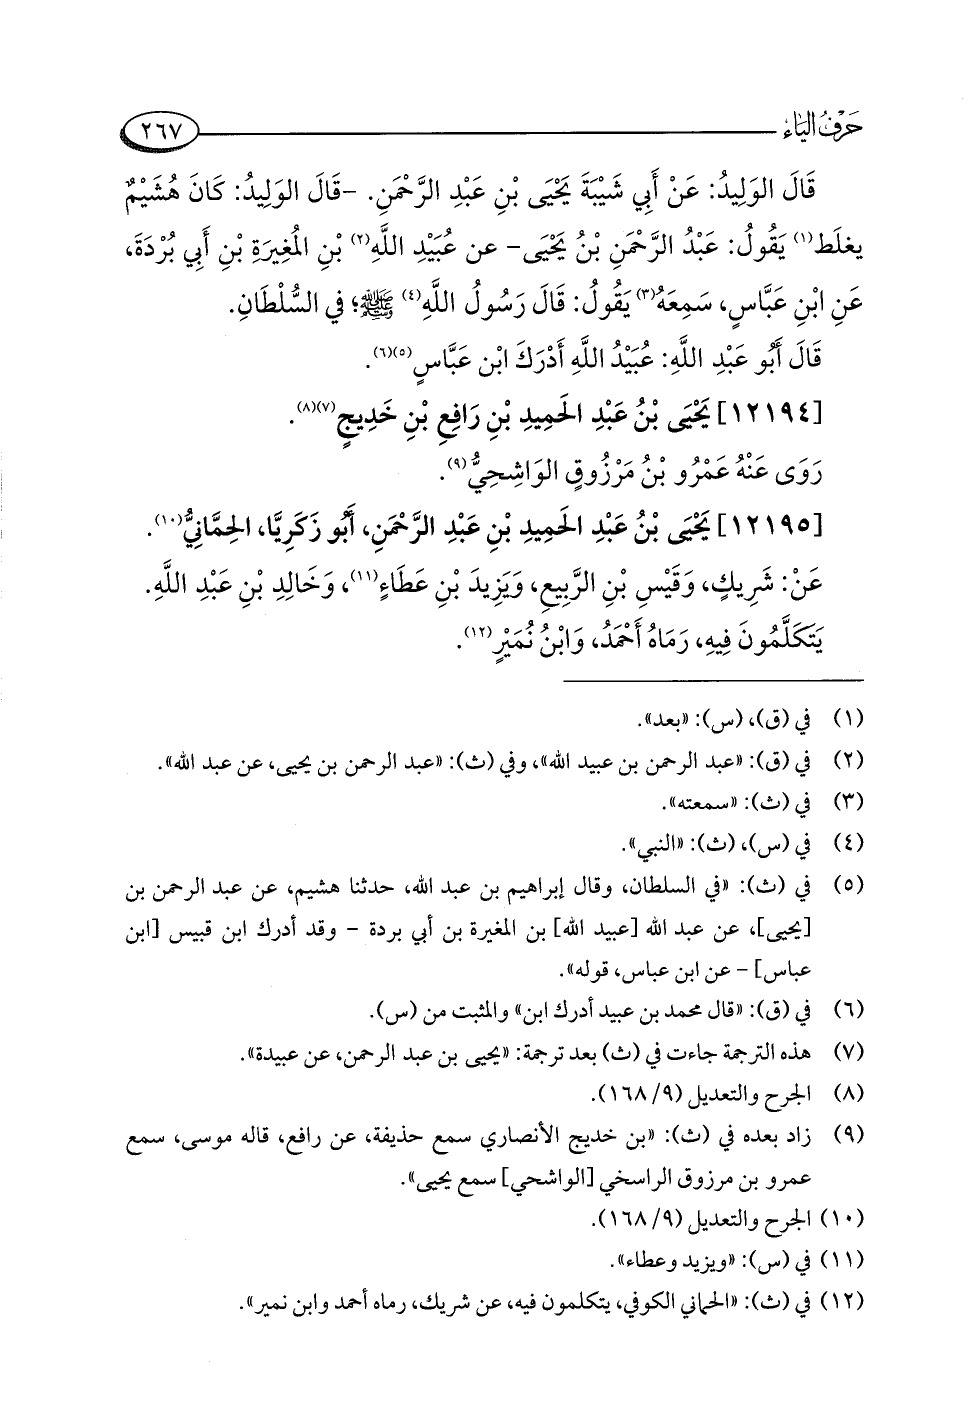 حَرْفُ اليَاء
٢٦٧
قَالَ الوَلِيدُ: عَنْ أَبِي شَيْبَةَ يَحْيَى بْنِ عَبْدِ الرَّحْمَنِ. -قَالَ الوَلِيدُ: كَانَ هُشَيْمٌ
يغلَط(١) يَقُولُ: عَبْدُ الرَّحْمَنِ بْنُ يَحْيَى- عن عُبَيْدِ اللَّهِ(٢) بْنِ المُغِيرَةِ بْنِ أَبِي بُرْدَةَ،
عَنِ ابْنِ عَبَّاسٍ، سَمِعَهُ(٣) يَقُولُ: قَالَ رَسُولُ اللَّهِ(٤) ﷺ؛ فِي السُّلْطَانِ.
قَالَ أَبُو عَبْدِ اللَّهِ: عُبَيْدُ اللَّهِ أَدْرَكَ ابْن عَبَّاسٍ(٥)(٦).
[١٢١٩٤] يَحْيَى بْنُ عَبْدِ الحَمِيدِ بْنِ رَافِعِ بْنِ خَدِيجٍ(٧)(٨).
رَوَى عَنْهُ عَمْرُو بْنُ مَرْزُوقٍ الوَاشِحِيُّ(٩).
[١٢١٩٥] يَحْيَى بْنُ عَبْدِ الحَمِيدِ بْنِ عَبْدِ الرَّحْمَنِ، أَبُو زَكَرِيَّا، الحِمَّانِيُّ(١٠).
عَنْ: شَرِيكٍ، وَقَيْسِ بْنِ الرَّبِيعِ، وَيَزِيدَ بْنِ عَطَاءٍ(١١)، وَخَالِدِ بْنِ عَبْدِ اللَّهِ.
يَتَكَلَّمُونَ فِيهِ، رَمَاهُ أَحْمَدُ، وَابْنُ نُمَيْرٍ(١٢).
(١) في (ق)، (س): «بعد».
(٢) في (ق): «عبد الرحمن بن عبيد الله»، وفي (ث): «عبد الرحمن بن يحيى، عن عبد الله».
(٣) في (ث): «سمعته».
(٤) في (س)، (ث): «النبي».
(٥) في (ث): «في السلطان، وقال إبراهيم بن عبد الله، حدثنا هشيم، عن عبد الرحمن بن
[يحيى]، عن عبد الله [عبيد الله] بن المغيرة بن أبي بردة - وقد أدرك ابن قبيس [ابن
عباس] - عن ابن عباس، قوله».
(٦) في (ق): «قال محمد بن عبيد أدرك ابن» والمثبت من (س).
(٧) هذه الترجمة جاءت في (ث) بعد ترجمة: «يحيى بن عبد الرحمن، عن عبيدة».
(٨) الجرح والتعديل (٩/ ١٦٨).
(٩) زاد بعده في (ث): «بن خديج الأنصاري سمع حذيفة، عن رافع، قاله موسى، سمع
عمرو بن مرزوق الراسخي [الواشحي] سمع يحيى».
(١٠) الجرح والتعديل (٩/ ١٦٨).
(١١) في (س): «ويزيد وعطاء».
(١٢) في (ث): «الحماني الكوفي، يتكلمون فيه، عن شريك، رماه أحمد وابن نمير».